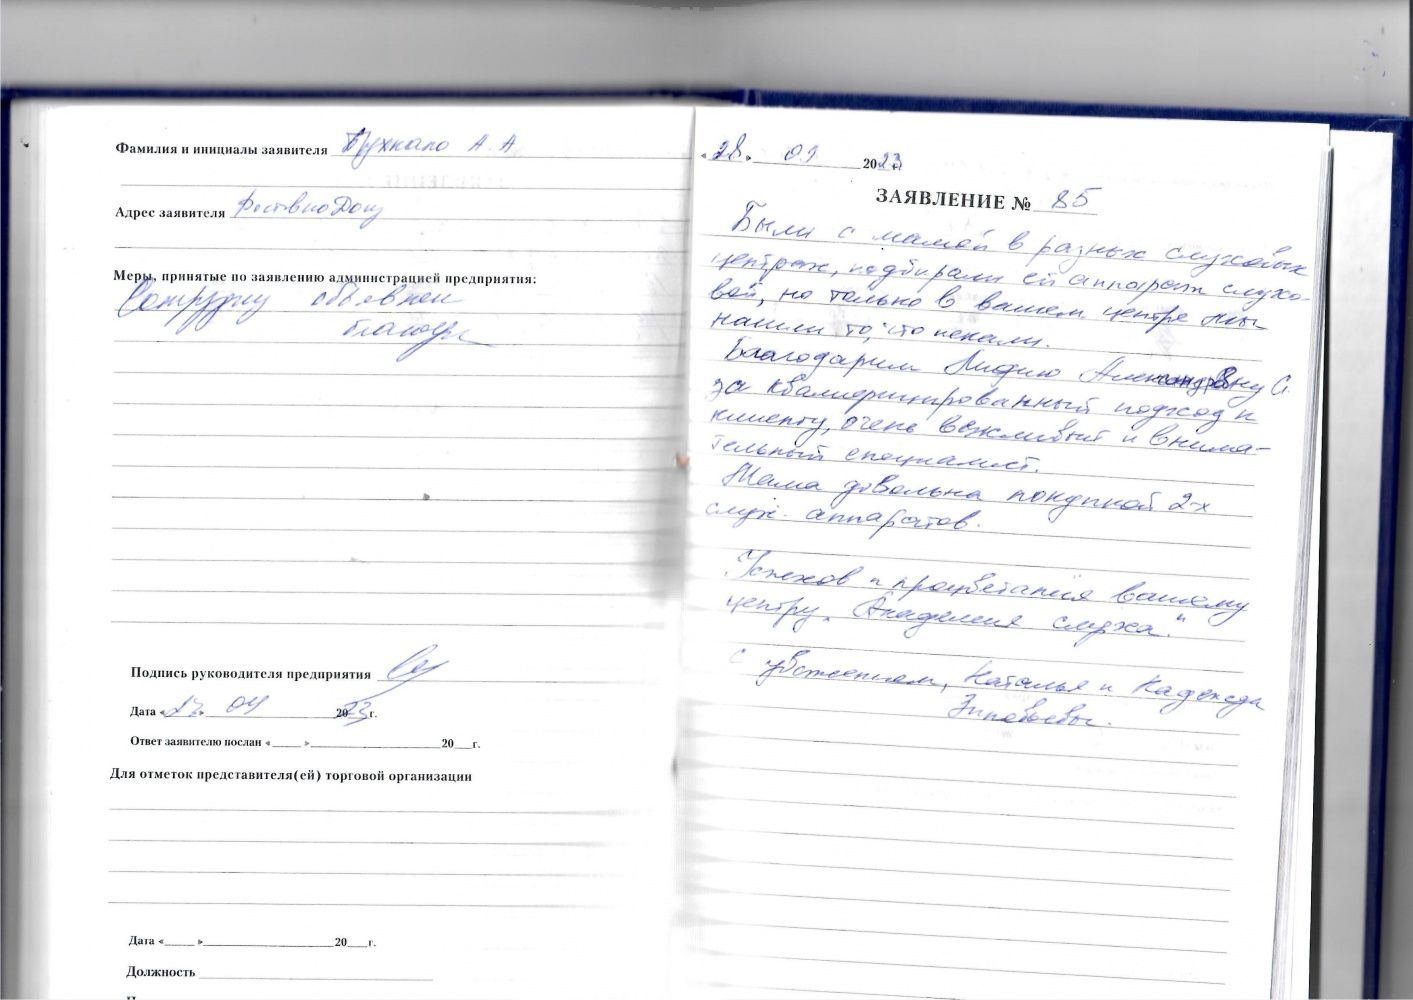 Фамилия и инициалы заявителя Трухкало А. А
Адрес заявителя Ростов на Дону
Меры, принятые по заявлению администрацией предприятия:
объявлена
Подпись руководителя предприятия
Дата « » 04 2023 г.
Ответ заявителю послан « » 20 г.
Для отметок представителя(ей) торговой организации
Дата « » 20 г.
Должность
«28» 03 2023 г.
ЗАЯВЛЕНИЕ № 85
Были с мамой в разных слуховых
центрах, подбирали ей аппарат слухо-
вой, но только в вашем центре мы
нашли то, что искали.
Благодарим Лидию Александровну С.
за квалифицированный подход к
клиенту, очень вежливый и внима-
тельный специалист.
Мама довольна покупкой 2-х
слух. аппаратов.
Успехов и процветания вашему
центру „Академия слуха."
С уважением, Наталья и Надежда
Зиновьевы.